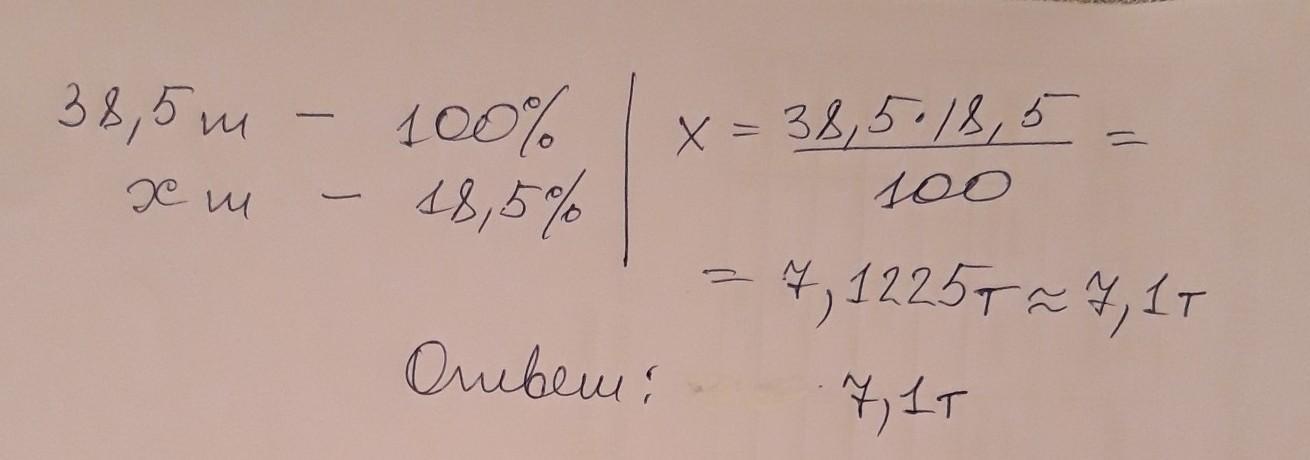 38,5т – 100%
х т – 18,5%
х = 38,5·18,5 / 100 =
= 7,1225т ≈ 7,1т
Ответ: 7,1т